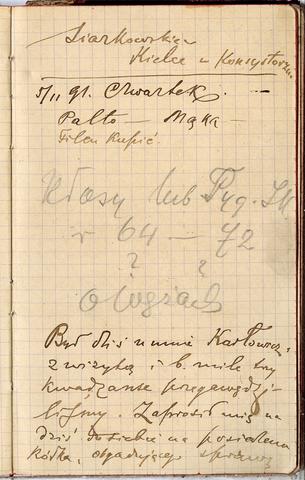 Siarkowskie
Kielce u Konsystorz.
5/11 91. Czwartek. —
Palto — Mąka —
Filcu kupić.
Kłosy lub Tyg. Il.
r 64 — 72
? ?
o wężach
Był dziś u mnie Karłowicz
z wizytą i b. mile trzy
kwadranse przegawędzi-
liśmy. Zaprosił mię na
dziś do siebie na posiedzenie
kółka, obgadującego sprawę